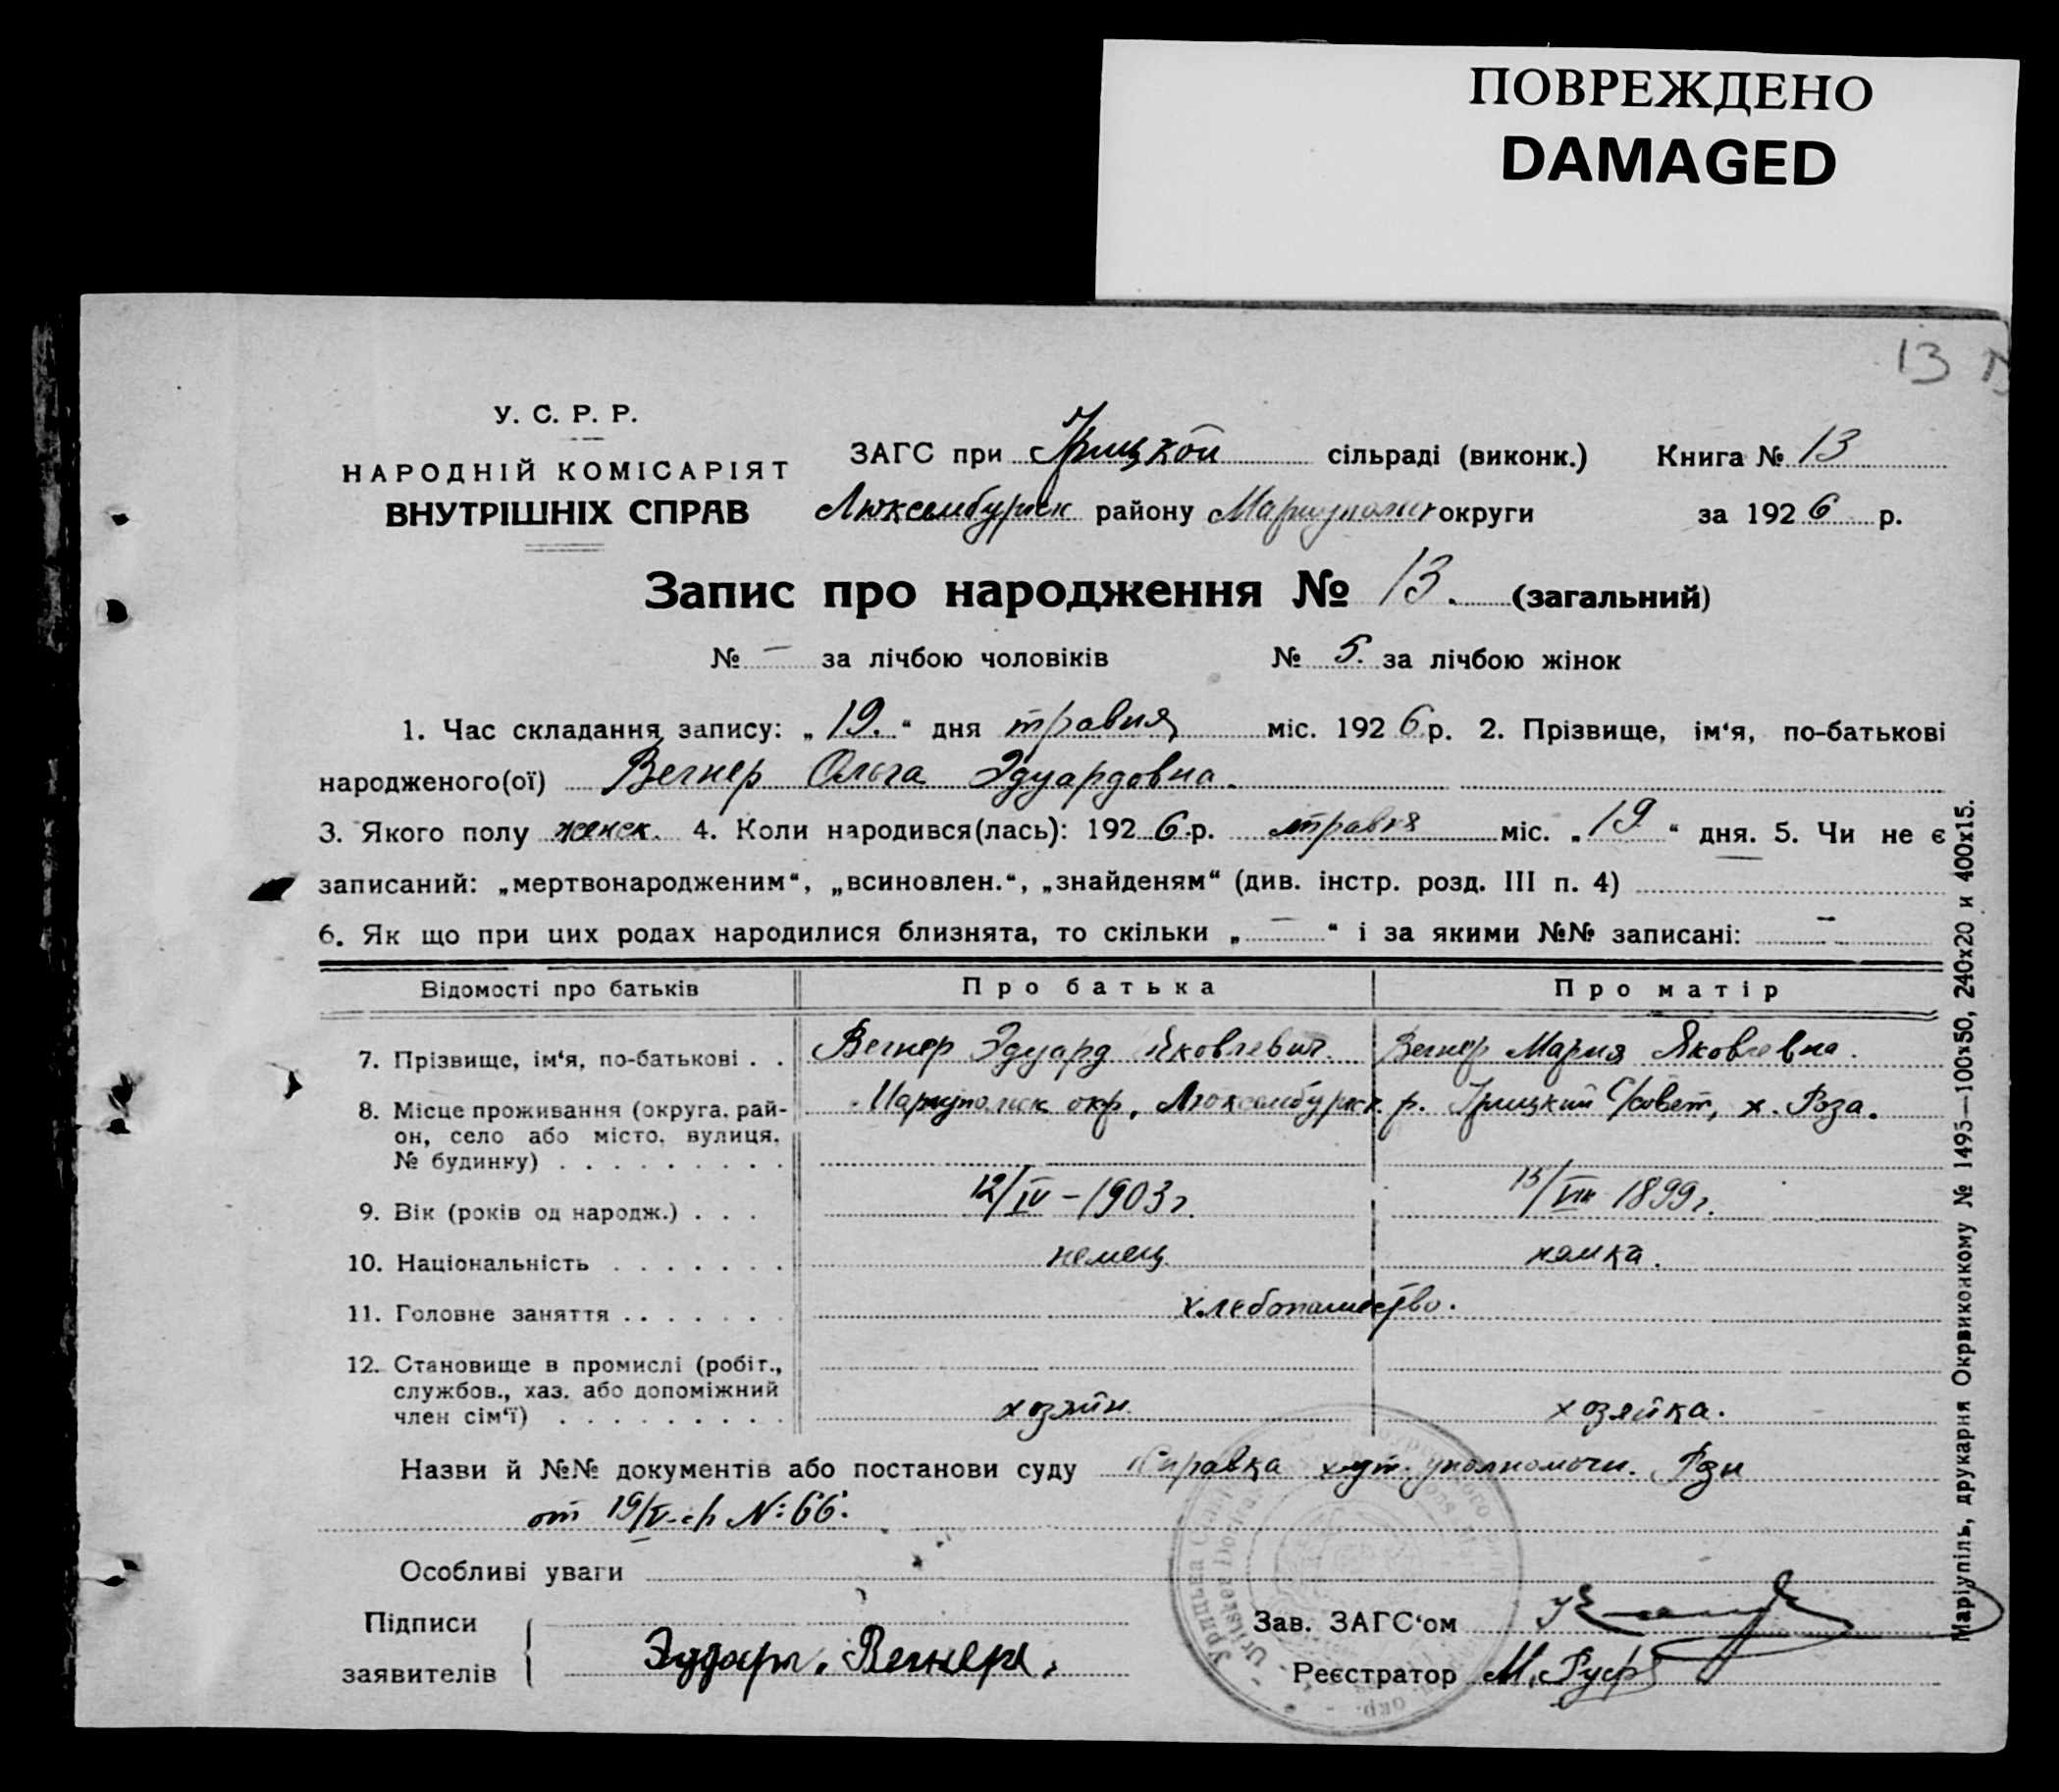 ПОВРЕЖДЕНО
DAMAGED
13
У. С. Р. Р.
НАРОДНІЙ КОМІСАРІЯТ
ВНУТРІШНІХ СПРАВ
ЗАГС при Урицкой сільраді (виконк.) Книга № 13
Люксембургск району Мариупольск округи за 1926 р.
Запис про народження № 13. (загальний)
№ – за лічбою чоловіків № 5. за лічбою жінок
1. Час складання запису: „19.“ дня травня міс. 1926 р. 2. Прізвище, ім‘я, по-батькові
народженого(ої) Вегнер Ольга Эдуардовна.
3. Якого полу женск. 4. Коли народився(лась): 1926 р. травня міс. „19“ дня. 5. Чи не є
записаний: „мертвонародженим“, „всиновлен.“, „знайденям“ (див. інстр. розд. III п. 4) —
6. Як що при цих родах народилися близнята, то скільки „—“ і за якими №№ записані: —
Відомості про батьків Про батька Про матір
7. Прізвище, ім‘я, по-батькові . . Вегнер Эдуард Яковлевич. Вегнер Мария Яковлевна.
8. Місце проживання (округа, рай- Мариупольск окр, Люксембургск. р. Урицкий С/совет, х. Роза.
он, село або місто, вулиця,
№ будинку) . . . . . . . . .
9. Вік (років од народж.) . . . 12/IV – 1903 г. 1899 г.
10. Національність . . . . . . . немец немка.
11. Головне заняття . . . . . . . хлебопашество.
12. Становище в промислі (робіт.,
службов., хаз. або допоміжний
член сім‘ї) . . . . . . . . . хозяин хозяйка.
Назви й №№ документів або постанови суду Справка хут. уполномочн.
от 19/V № 66.
Особливі уваги
Підписи
заявителів
Вегнер
Зав. ЗАГС‘ом
Реєстратор М. Руф
Маріупіль, друкарня Окрвиконкому № 1495—100x50, 240x20 и 400x15.